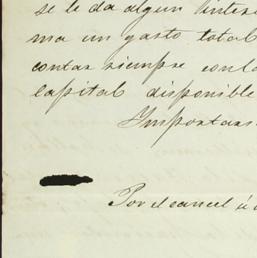 se le da algun interes
ma un gasto total
contar siempre con la
capital disponible
Importan
Por el cancel é